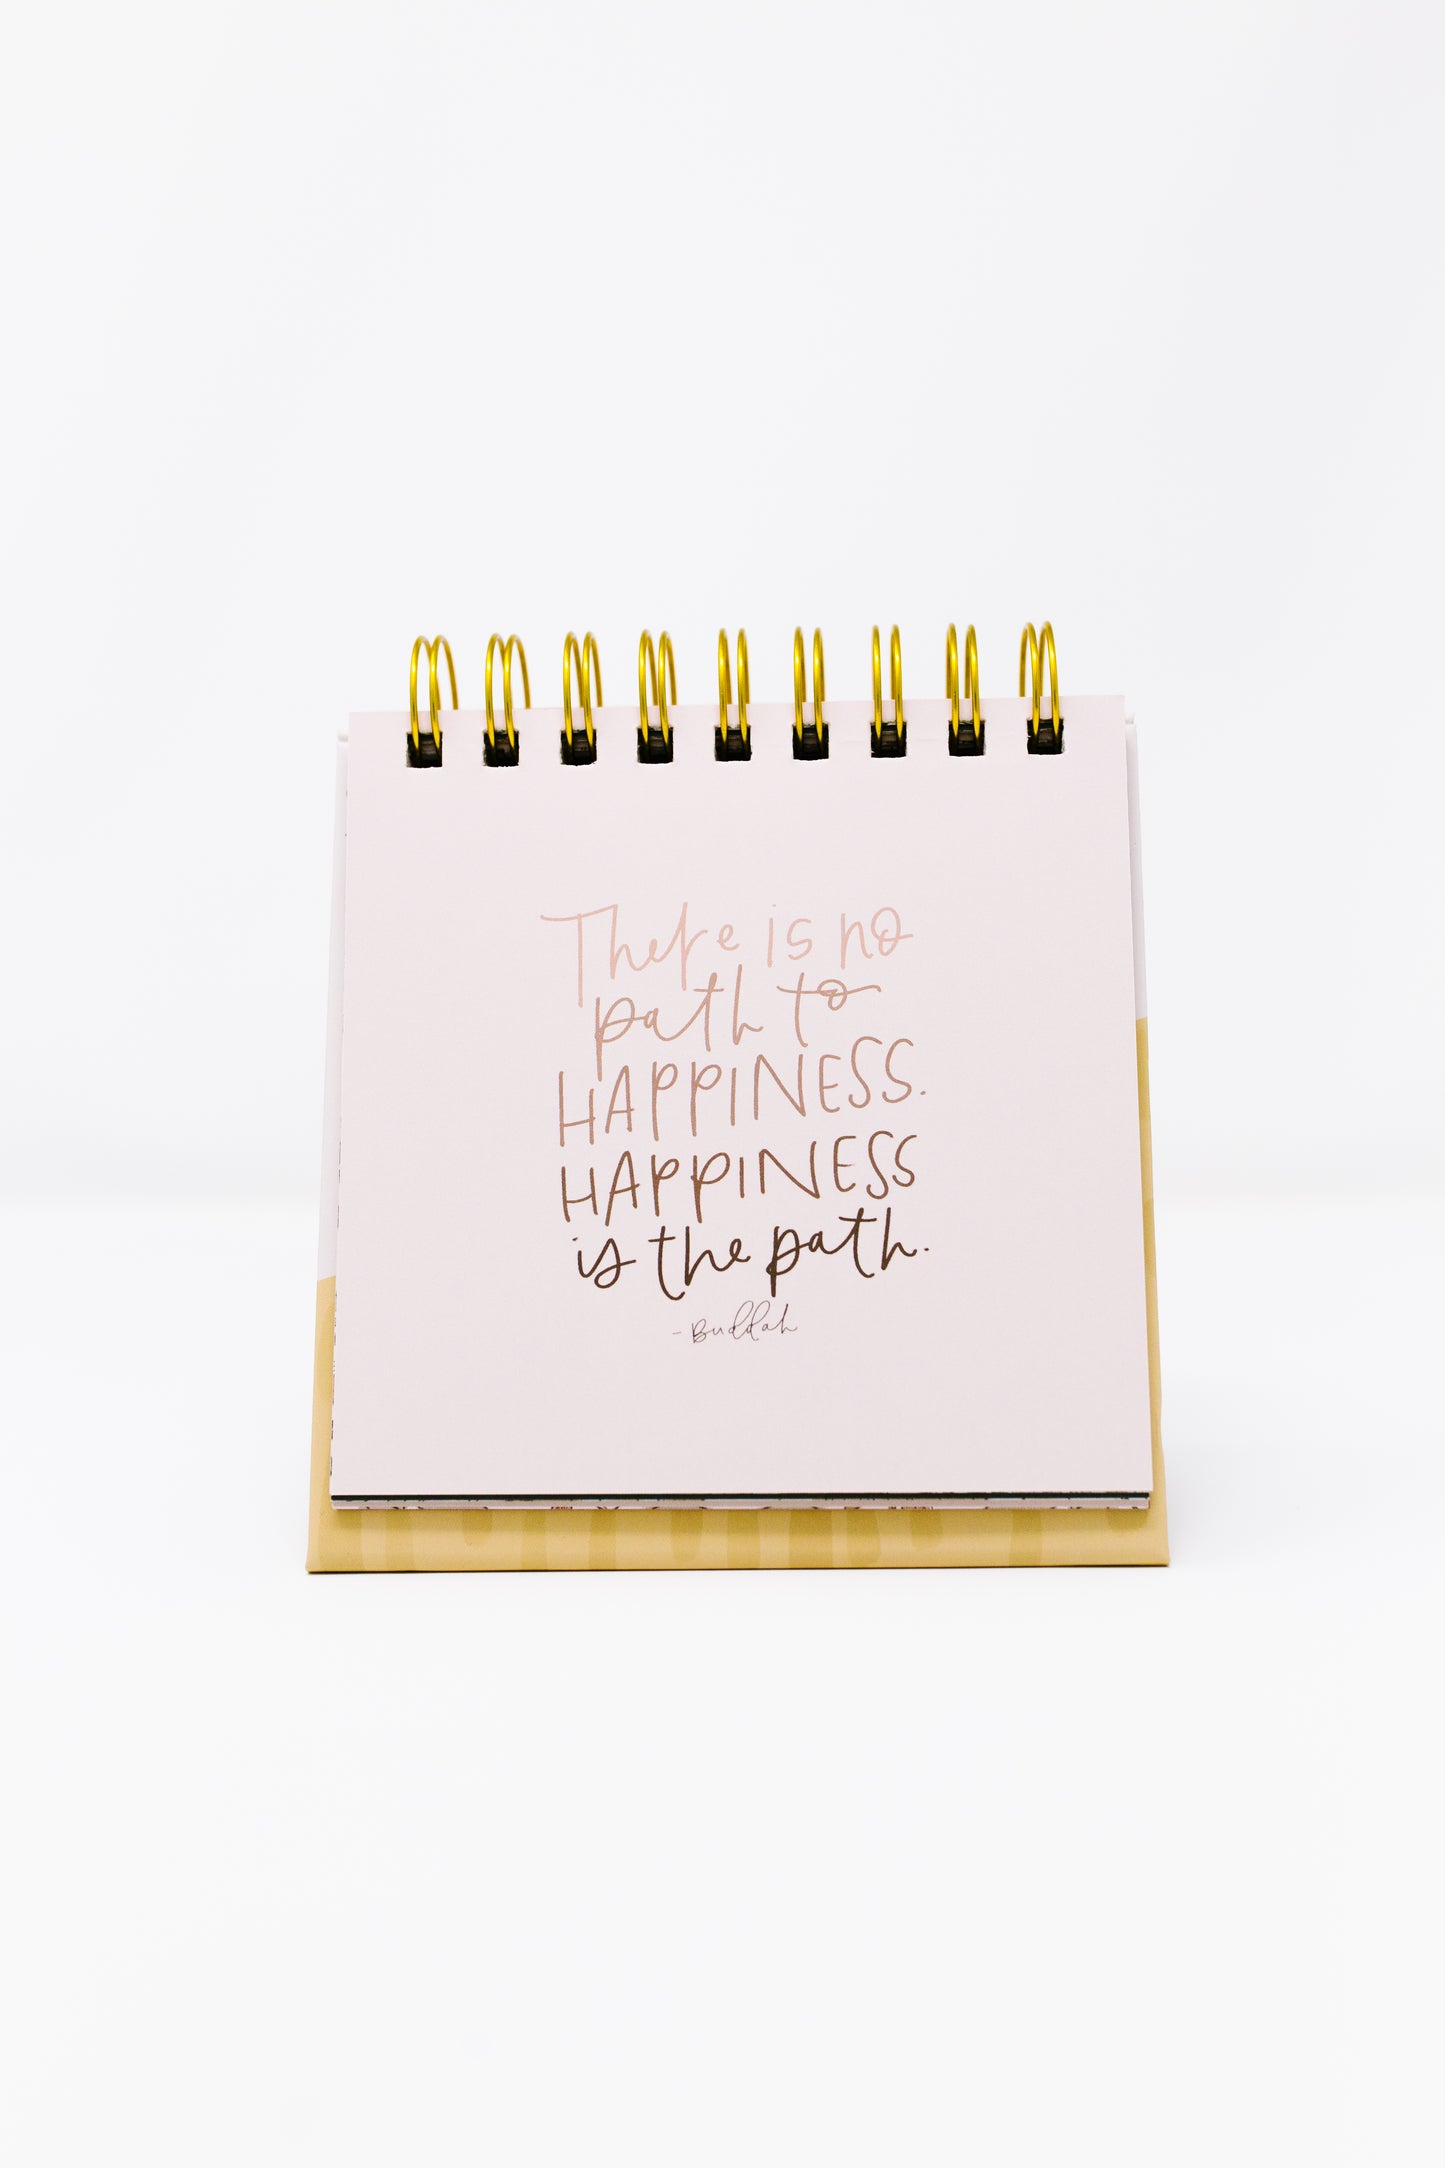 There is no
path to
HAPPINESS.
HAPPINESS
is the path.
-Buddah